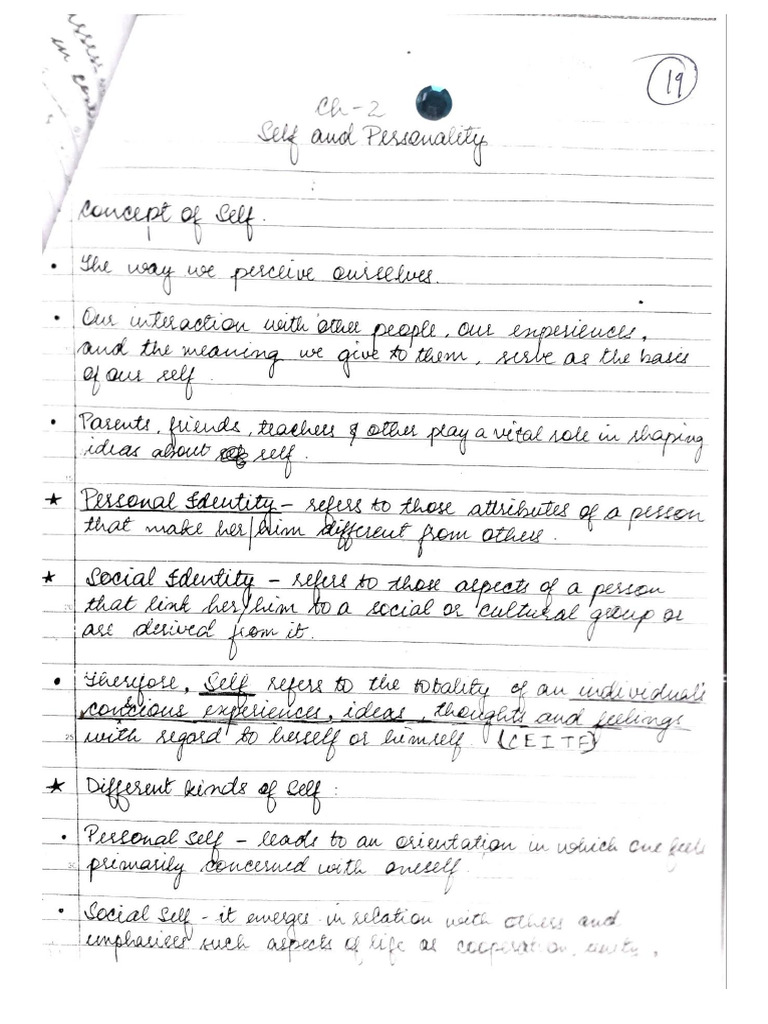 19
Ch-2
Self and Personality
Concept of Self.
• The way we perceive ourselves.
• Our interaction with other people, our experiences,
and the meaning we give to them, serve as the basis
of our self.
• Parents, friends, teachers & other play a vital role in shaping
ideas about self.
★ Personal Identity - refers to those attributes of a person
that make her/him different from others.
★ Social Identity - refers to those aspects of a person
that link her/him to a social or cultural group or
are derived from it.
• Therefore, Self refers to the totality of an individual's
conscious experiences, ideas, thoughts and feelings
with regard to herself or himself. (CEITF)
★ Different kinds of Self:
• Personal Self - leads to an orientation in which one feels
primarily concerned with oneself.
• Social Self - it emerges in relation with others and
emphasises such aspects of life as cooperation, unity,